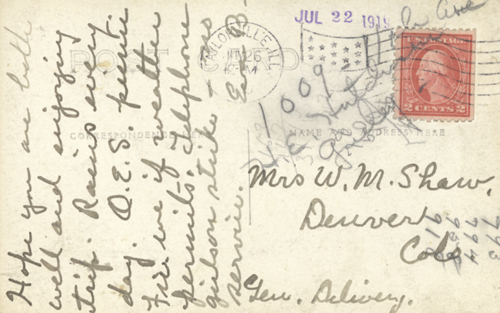 Hope you are both
well and enjoying
trip. Rains every
day. O.E.S. picnic
Fri eve if weather
permits. Telephone
girls on strike -
service. Ed
POST CARD
CORRESPONDENCE HERE
NAME AND ADDRESS HERE
TAYLORVILLE, ILL.
JUL 22 1919
1009
2 CENTS 2
Mrs W. M. Shaw,
Denver
Colo
Gen. Delivery.